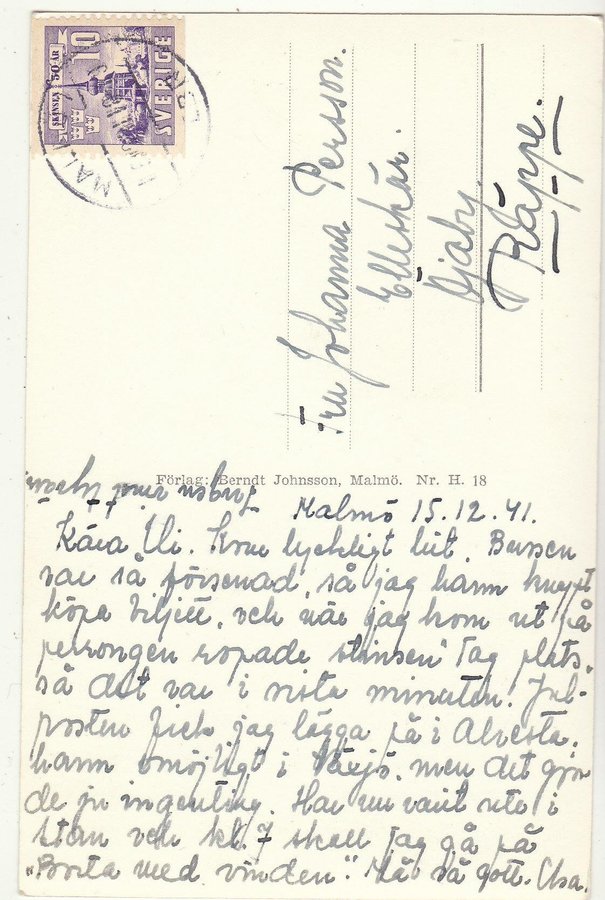 SKANSEN 50 ÅR
10
SVERIGE
Fru Johanna Persson.
Elleskär.
Öjaby.
Räppe.
Förlag: Berndt Johnsson, Malmö. Nr. H. 18
Malmö 15.12.41.
Kära Ni. Kom lyckligt hit. Bussen
var så försenad, så jag hann knappt
köpa biljett, och när jag kom ut på
perrongen ropade stinsen "Tag plats.
så det var i sista minuten. Jul-
posten fick jag lägga på i Alvesta,
hann omöjligt i Växjö, men det gjor
de ju ingenting. Har nu varit ute i
stan och kl. 7 skall jag gå på
"Borta med vinden". Må så gott. Elsa.